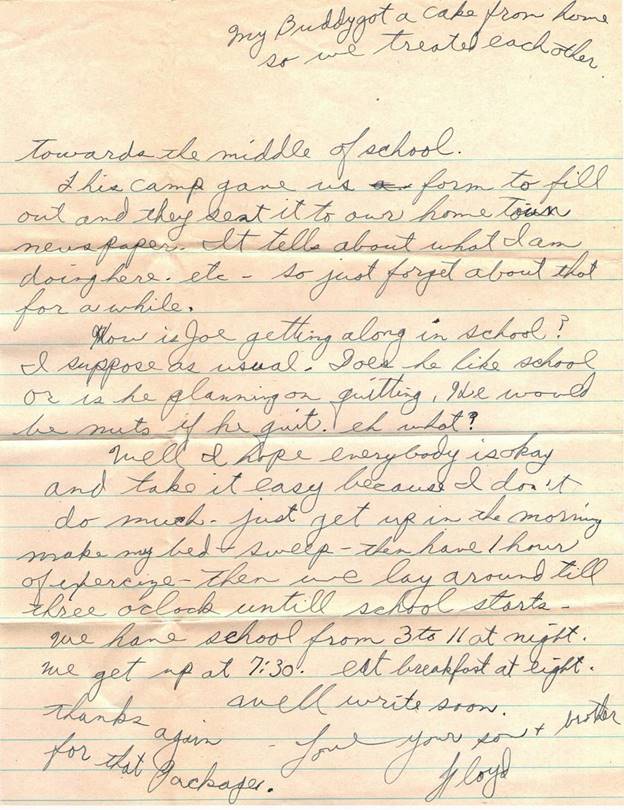 My Buddy got a cake from home
so we treated each other
towards the middle of school.
This camp gave us a form to fill
out and they sent it to our home town
newspaper. It tells about what I am
doing here. etc - so just forget about that
for a while.
How is Joe getting along in school?
I suppose as usual. Does he like school
or is he planning on quitting. He would
be nuts if he quit. eh what?
Well I hope everybody is okay
and take it easy because I don't
do much - just get up in the morning
make my bed - sweep - then have 1 hour
of expercize - then we lay around till
three oclock untill school starts -
We have school from 3 to 11 at night.
We get up at 7:30. eat breakfast at eight.
well write soon.
thanks again
for that Package.
- Love your son + brother
Floyd